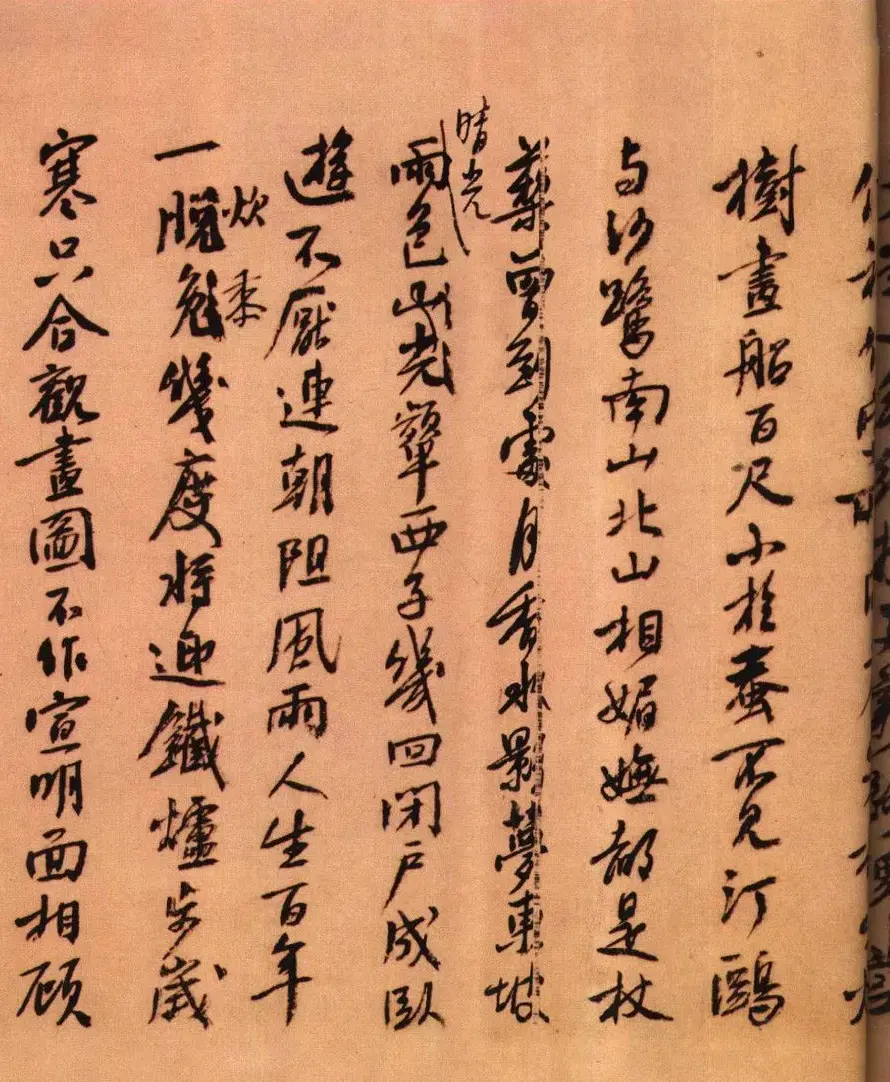 樹畫船百尺小於蚕不見汀鷗
与沙鷺南山北山相媚嫵都是杖
藜曾到處月香水影夢東坡
晴光
雨色山光顰西子幾回閉戶成臥
遊不厭連朝阻風雨人生百年
炊黍
一幾度將迎鐵爐步歲
寒只合觀畫圖不作宣明面相顾